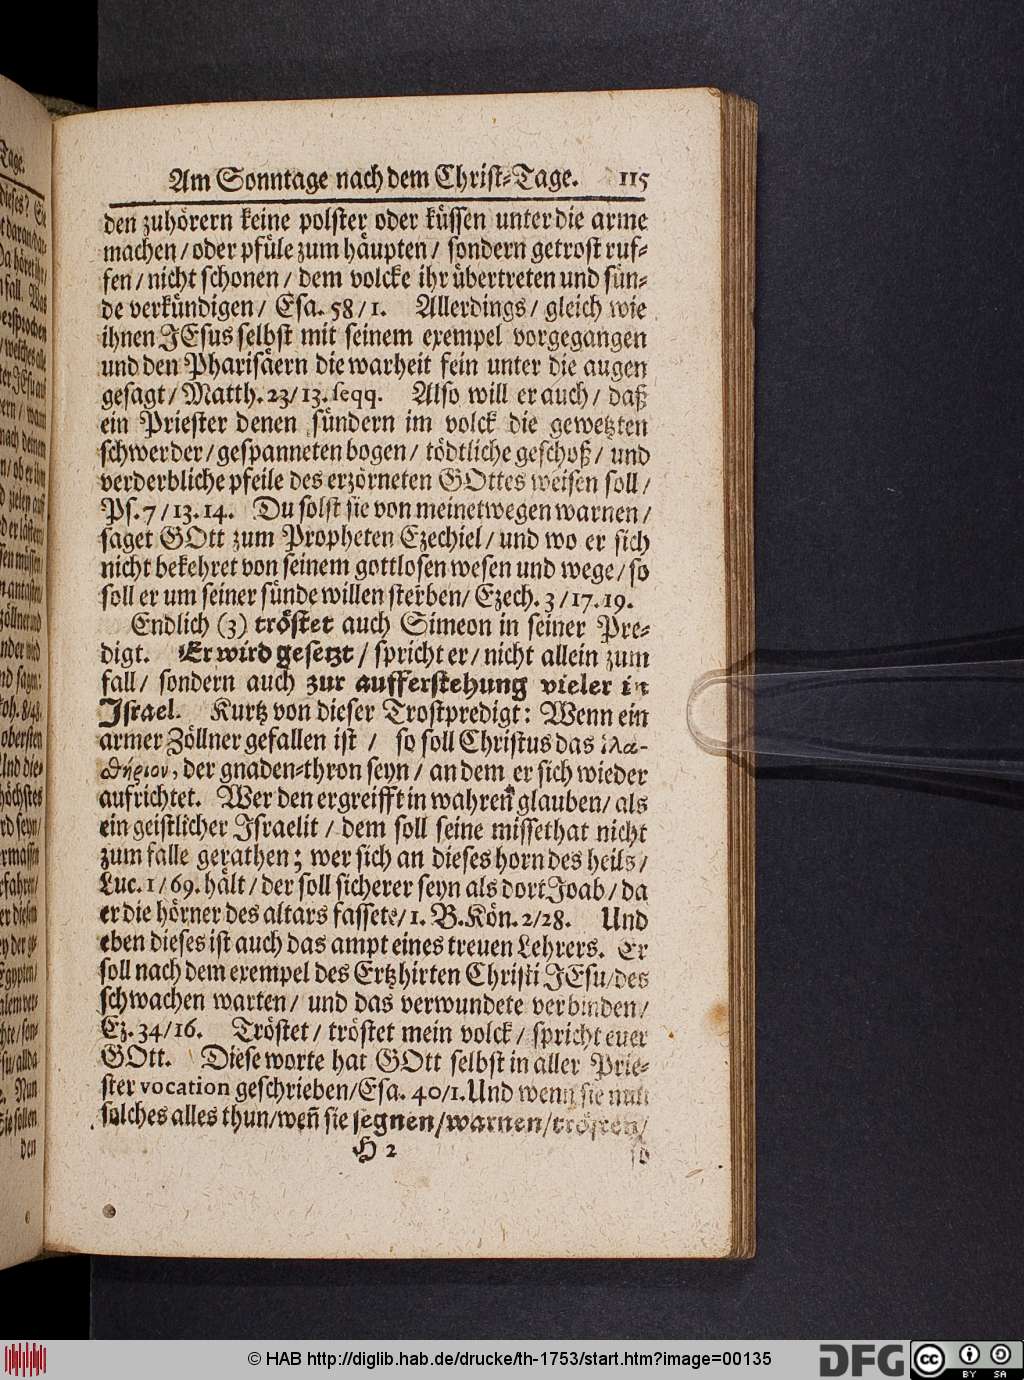 Am Sonntage nach dem Christ-Tage. 115
den zuhörern keine polster oder küssen unter die arme
machen / oder pfüle zum häupten / sondern getrost ruf-
fen / nicht schonen / dem volcke ihr übertreten und sün-
de verkündigen / Esa. 58 / 1. Allerdings / gleich wie
ihnen JEsus selbst mit seinem exempel vorgegangen
und den Pharisäern die warheit fein unter die augen
gesagt / Matth. 23 / 13. seqq. Also will er auch / daß
ein Priester denen sündern im volck die gewetzten
schwerder / gespanneten bogen / tödtliche geschoß / und
verderbliche pfeile des erzörneten GOttes weisen soll /
Ps. 7 / 13. 14. Du solst sie von meinetwegen warnen /
saget GOtt zum Propheten Ezechiel / und wo er sich
nicht bekehret von seinem gottlosen wesen und wege / so
soll er um seiner sünde willen sterben / Ezech. 3 / 17. 19.
Endlich (3) tröstet auch Simeon in seiner Pre-
digt. Er wird gesetzt / spricht er / nicht allein zum
fall / sondern auch zur aufferstehung vieler in
Israel. Kurtz von dieser Trostpredigt: Wenn ein
armer Zöllner gefallen ist / so soll Christus das ἱλα-
ϑήριον, der gnaden-thron seyn / an dem er sich wieder
aufrichtet. Wer den ergreifft in wahren glauben / als
ein geistlicher Israelit / dem soll seine missethat nicht
zum falle gerathen; wer sich an dieses horn des heils /
Luc. 1 / 69. hält / der soll sicherer seyn als dort Joab / da
er die hörner des altars fassete / 1. B. Kön. 2 / 28. Und
eben dieses ist auch das ampt eines treuen Lehrers. Er
soll nach dem exempel des Ertzhirten Christi JEsu / des
schwachen warten / und das verwundete verbinden /
Ez. 34 / 16. Tröstet / tröstet mein volck / spricht euer
GOtt. Diese worte hat GOtt selbst in aller Prie-
ster vocation geschrieben / Esa. 40 / 1. Und wenn sie nun
solches alles thun / weñ sie segnen / warnen / trösten /
H 2
so
© HAB http://diglib.hab.de/drucke/th-1753/start.htm?image=00135
DFG
cc BY SA